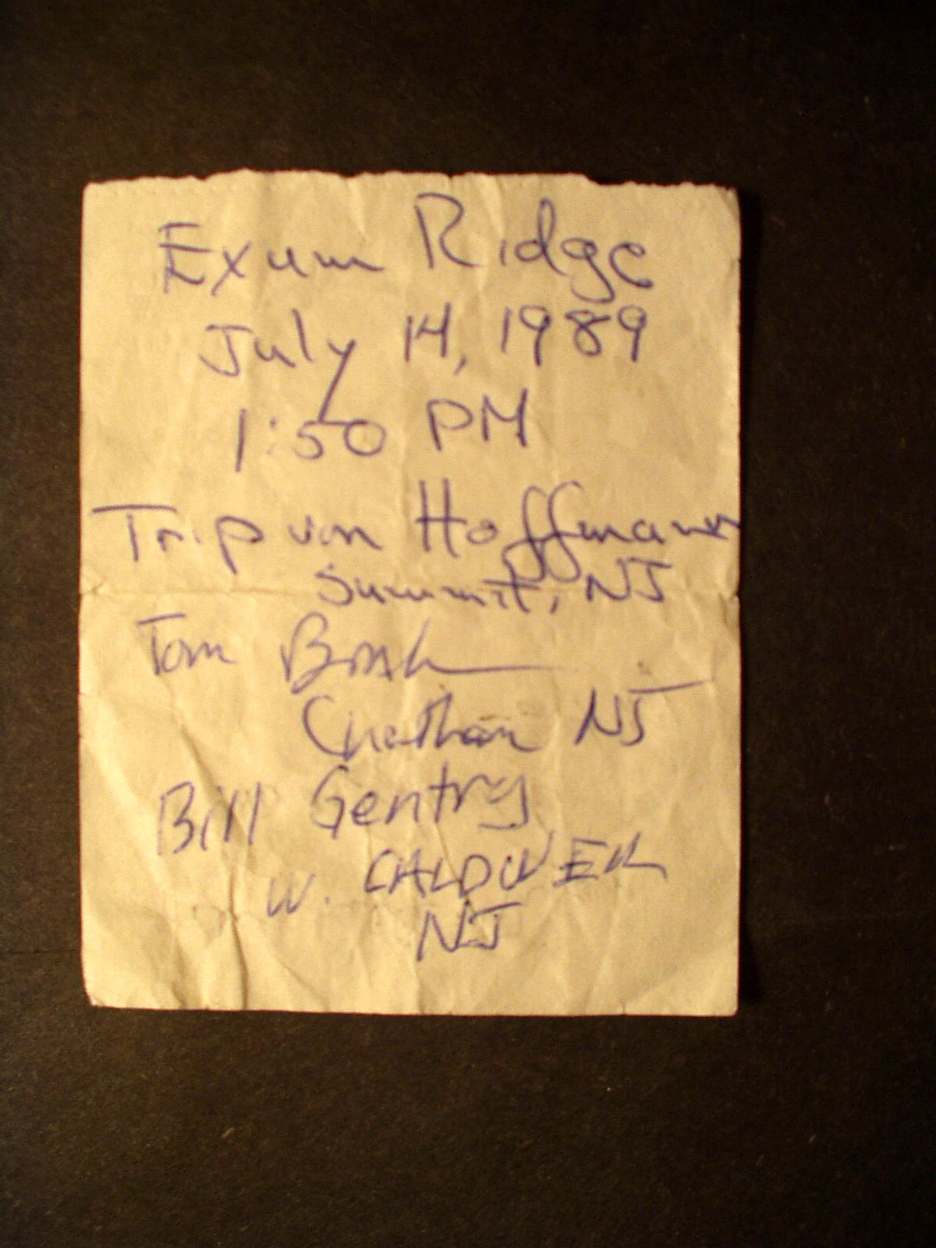 Exum Ridge
July 14, 1989
1:50 PM
Trip von Hoffmann
Summit, NJ
Tom
Chatham NJ
Bill Gentry
W. CALDWELL
NJ